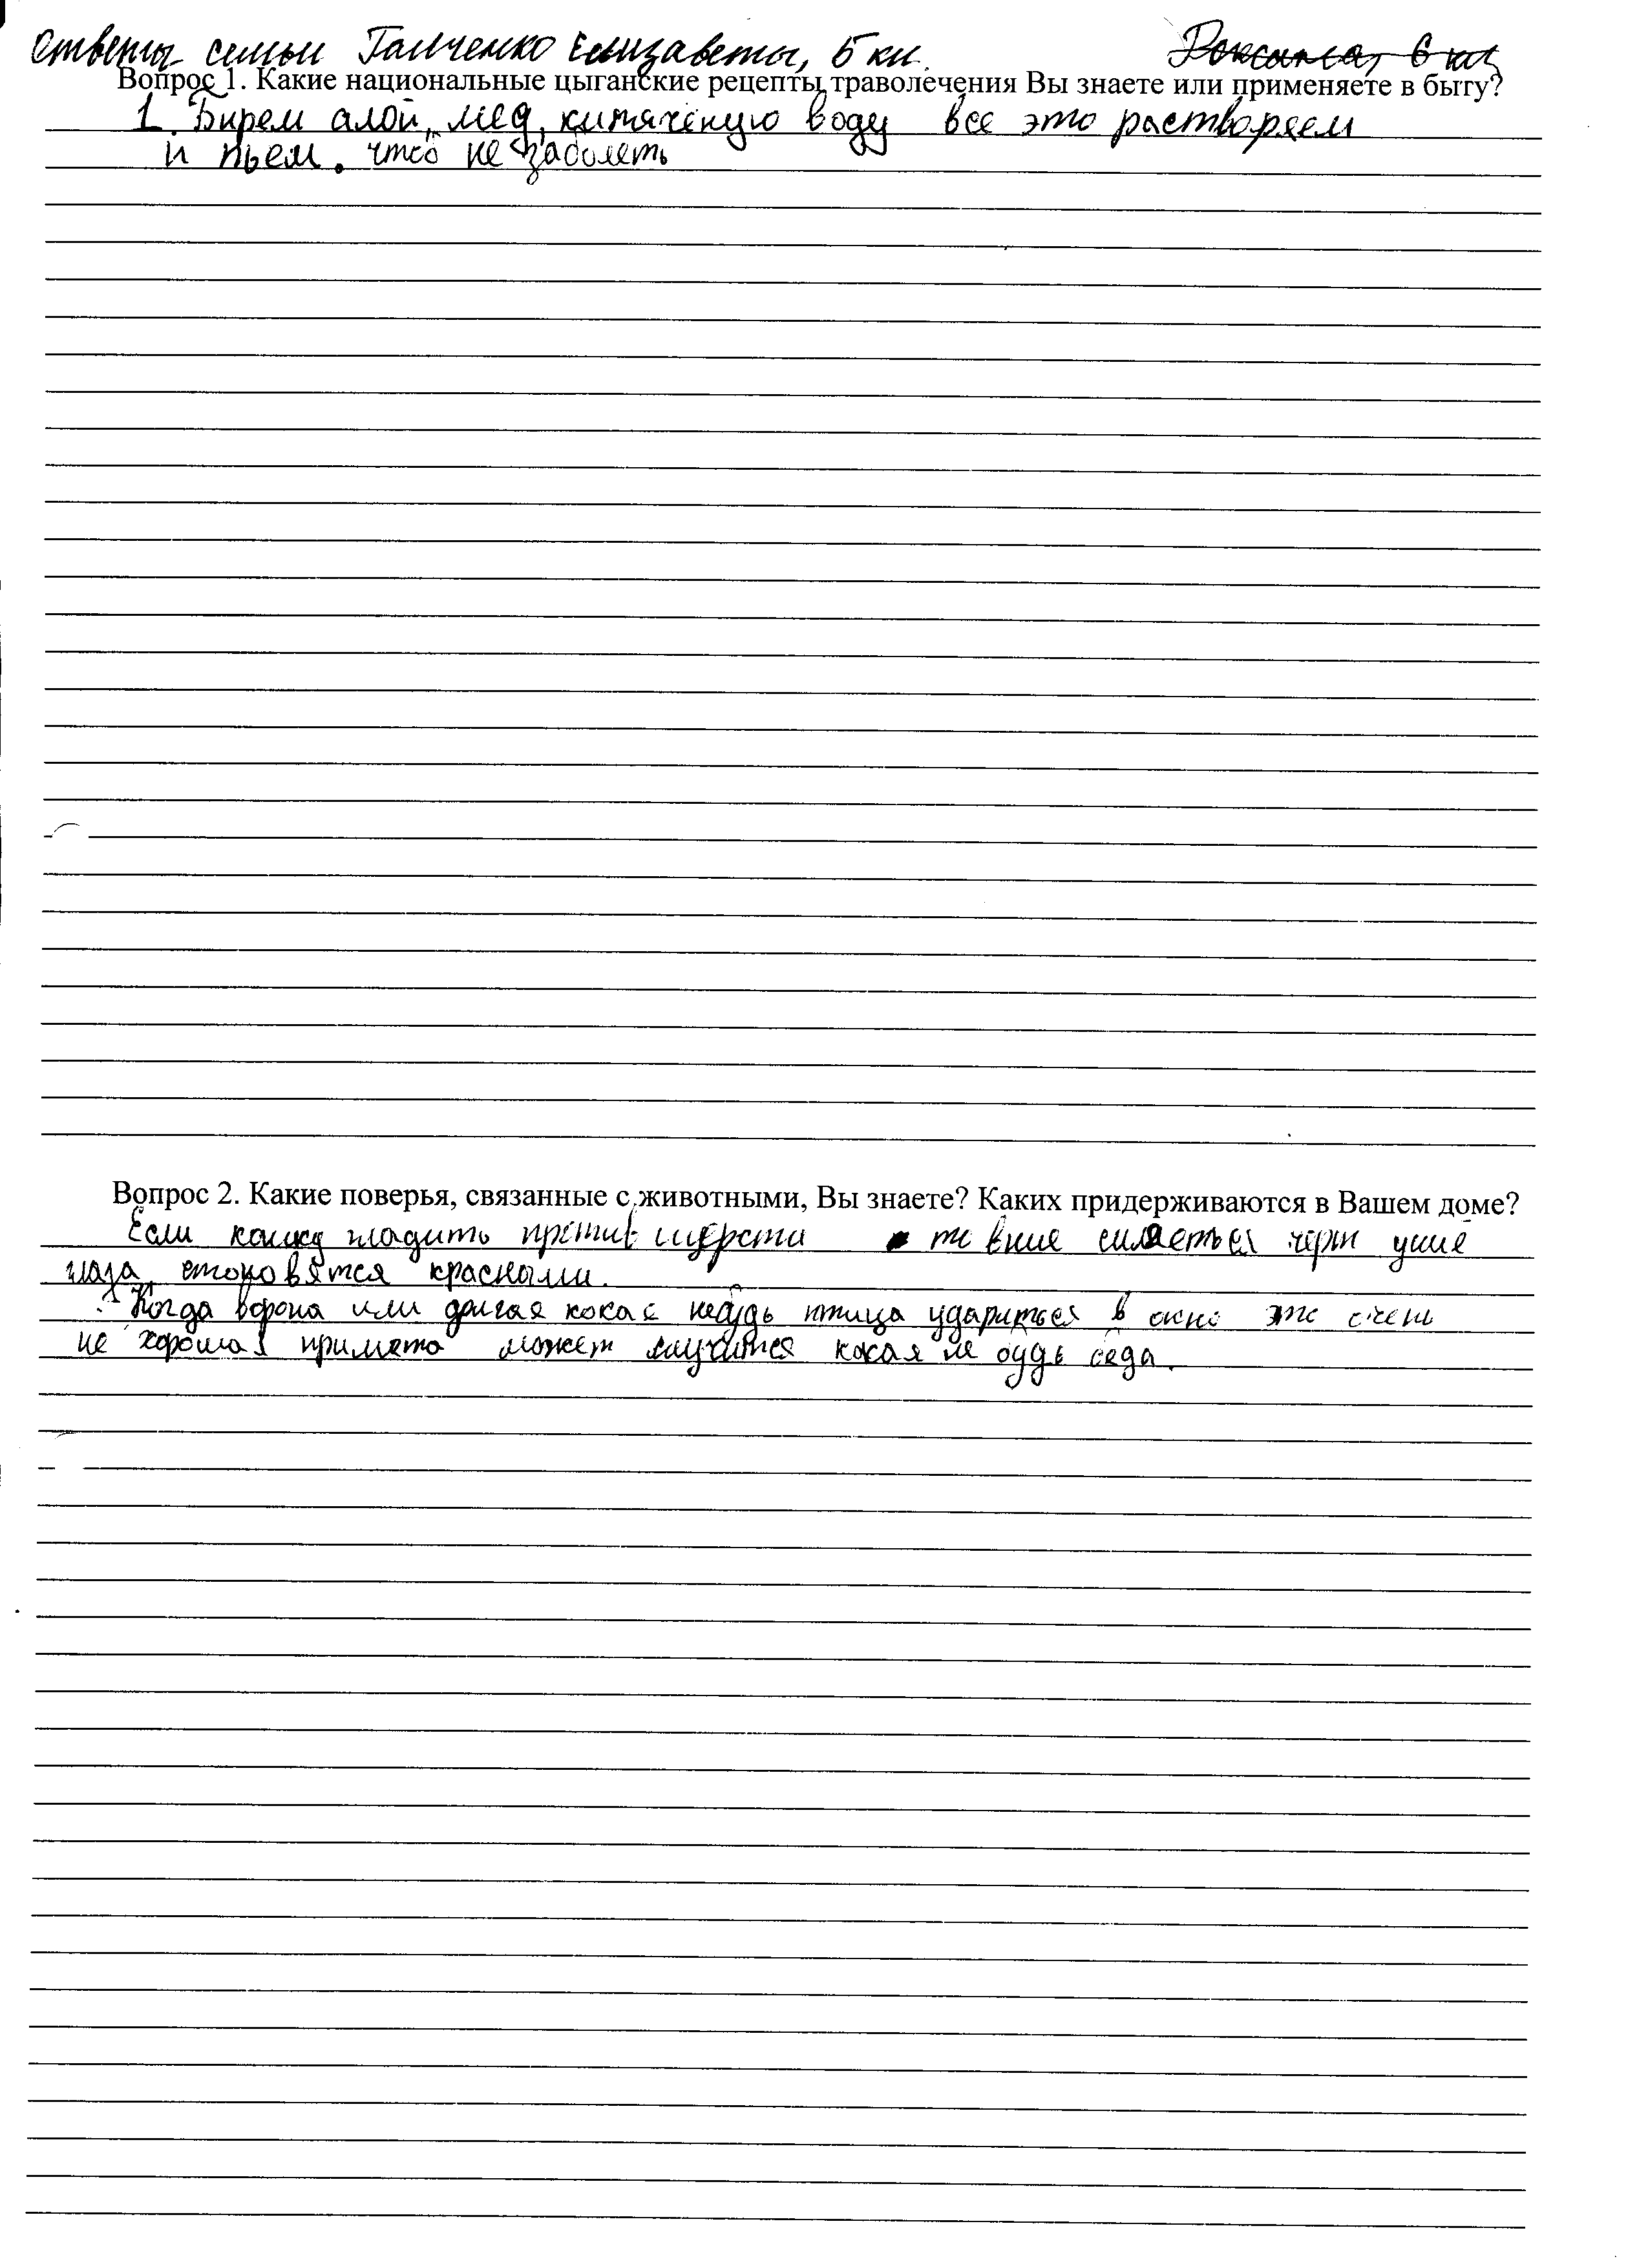 Ответы семьи Ганченко Елизаветы, 5 кл.
Вопрос 1. Какие национальные цыганские рецепты траволечения Вы знаете или применяете в быту?
1. Бирем алой, мед, кипяченую воду все это растворяем
и пьем. что не заболеть
Вопрос 2. Какие поверья, связанные с животными, Вы знаете? Каких придерживаются в Вашем доме?
Если кошку гладить против шерсти то в ние черт у ние
глаза становятся красными.
Когда ворона или другая кокая небудь птица удариться в окно это очень
не хорошая примета может случится кокая не будь беда.